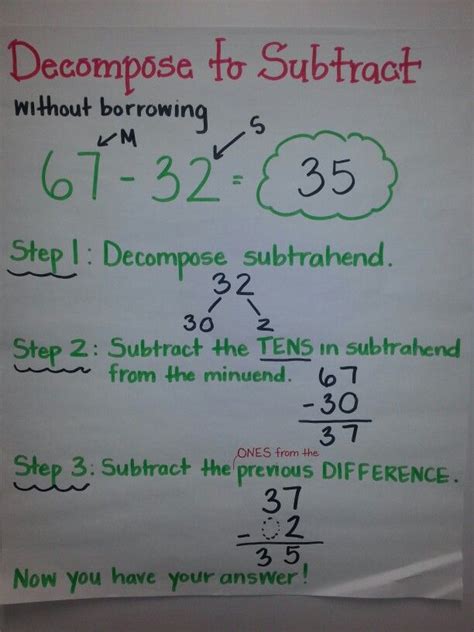 Decompose to Subtract
without borrowing
M S
67 - 32 = 35
Step 1: Decompose subtrahend.
32
30 2
Step 2: Subtract the TENS in subtrahend
from the minuend. 67
-30
37
ONES from the
Step 3: Subtract the previous DIFFERENCE.
37
- 02
35
Now you have your answer!